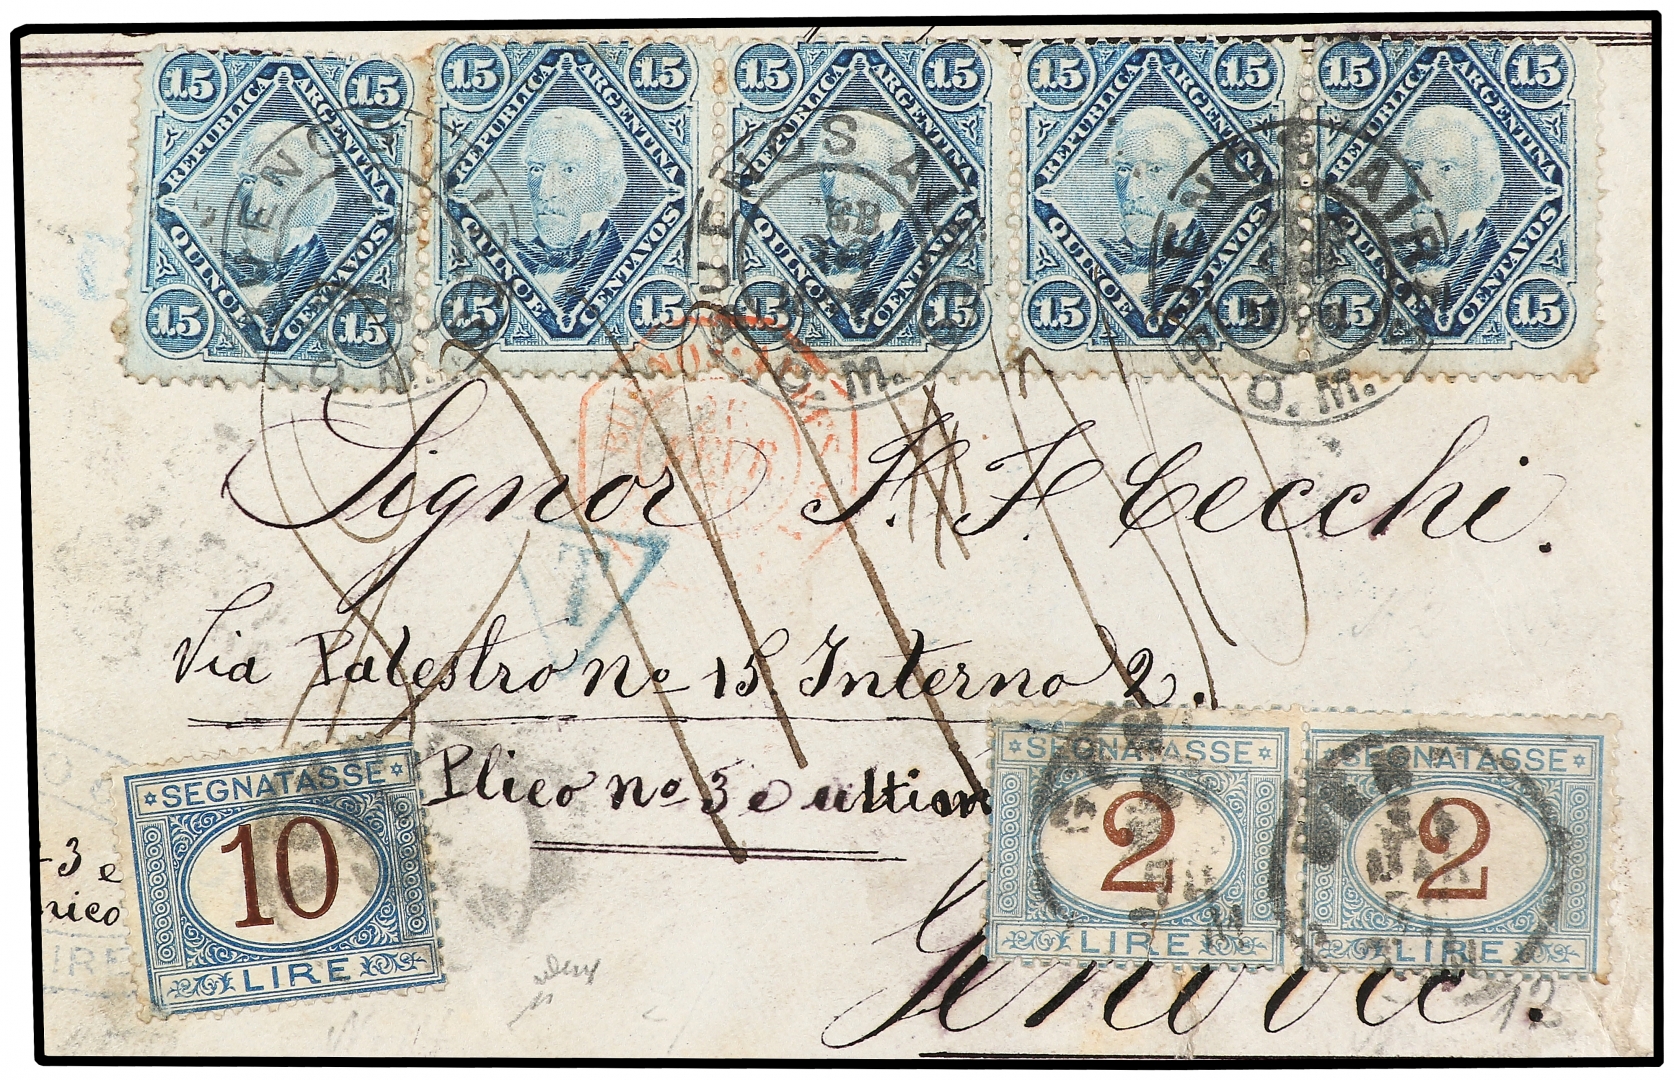 15 15 15 15 15 15 15 15 15 15
REPUBLICA ARGENTINA REPUBLICA ARGENTINA REPUBLICA ARGENTINA REPUBLICA ARGENTINA REPUBLICA ARGENTINA
QUINCE CENTAVOS QUINCE CENTAVOS QUINCE CENTAVOS QUINCE CENTAVOS QUINCE CENTAVOS
15 15 15 15 15 15 15 15 15 15
BUENOS AIRES
FEB
O. M.
Signor
Cecchi.
T
Via Palestro No 15. Interno 2.
Plico no 3 e ultim
SEGNATASSE
10
LIRE
SEGNATASSE
2
LIRE
SEGNATASSE
2
LIRE
3 e
nico
LIRE
Genova.
12